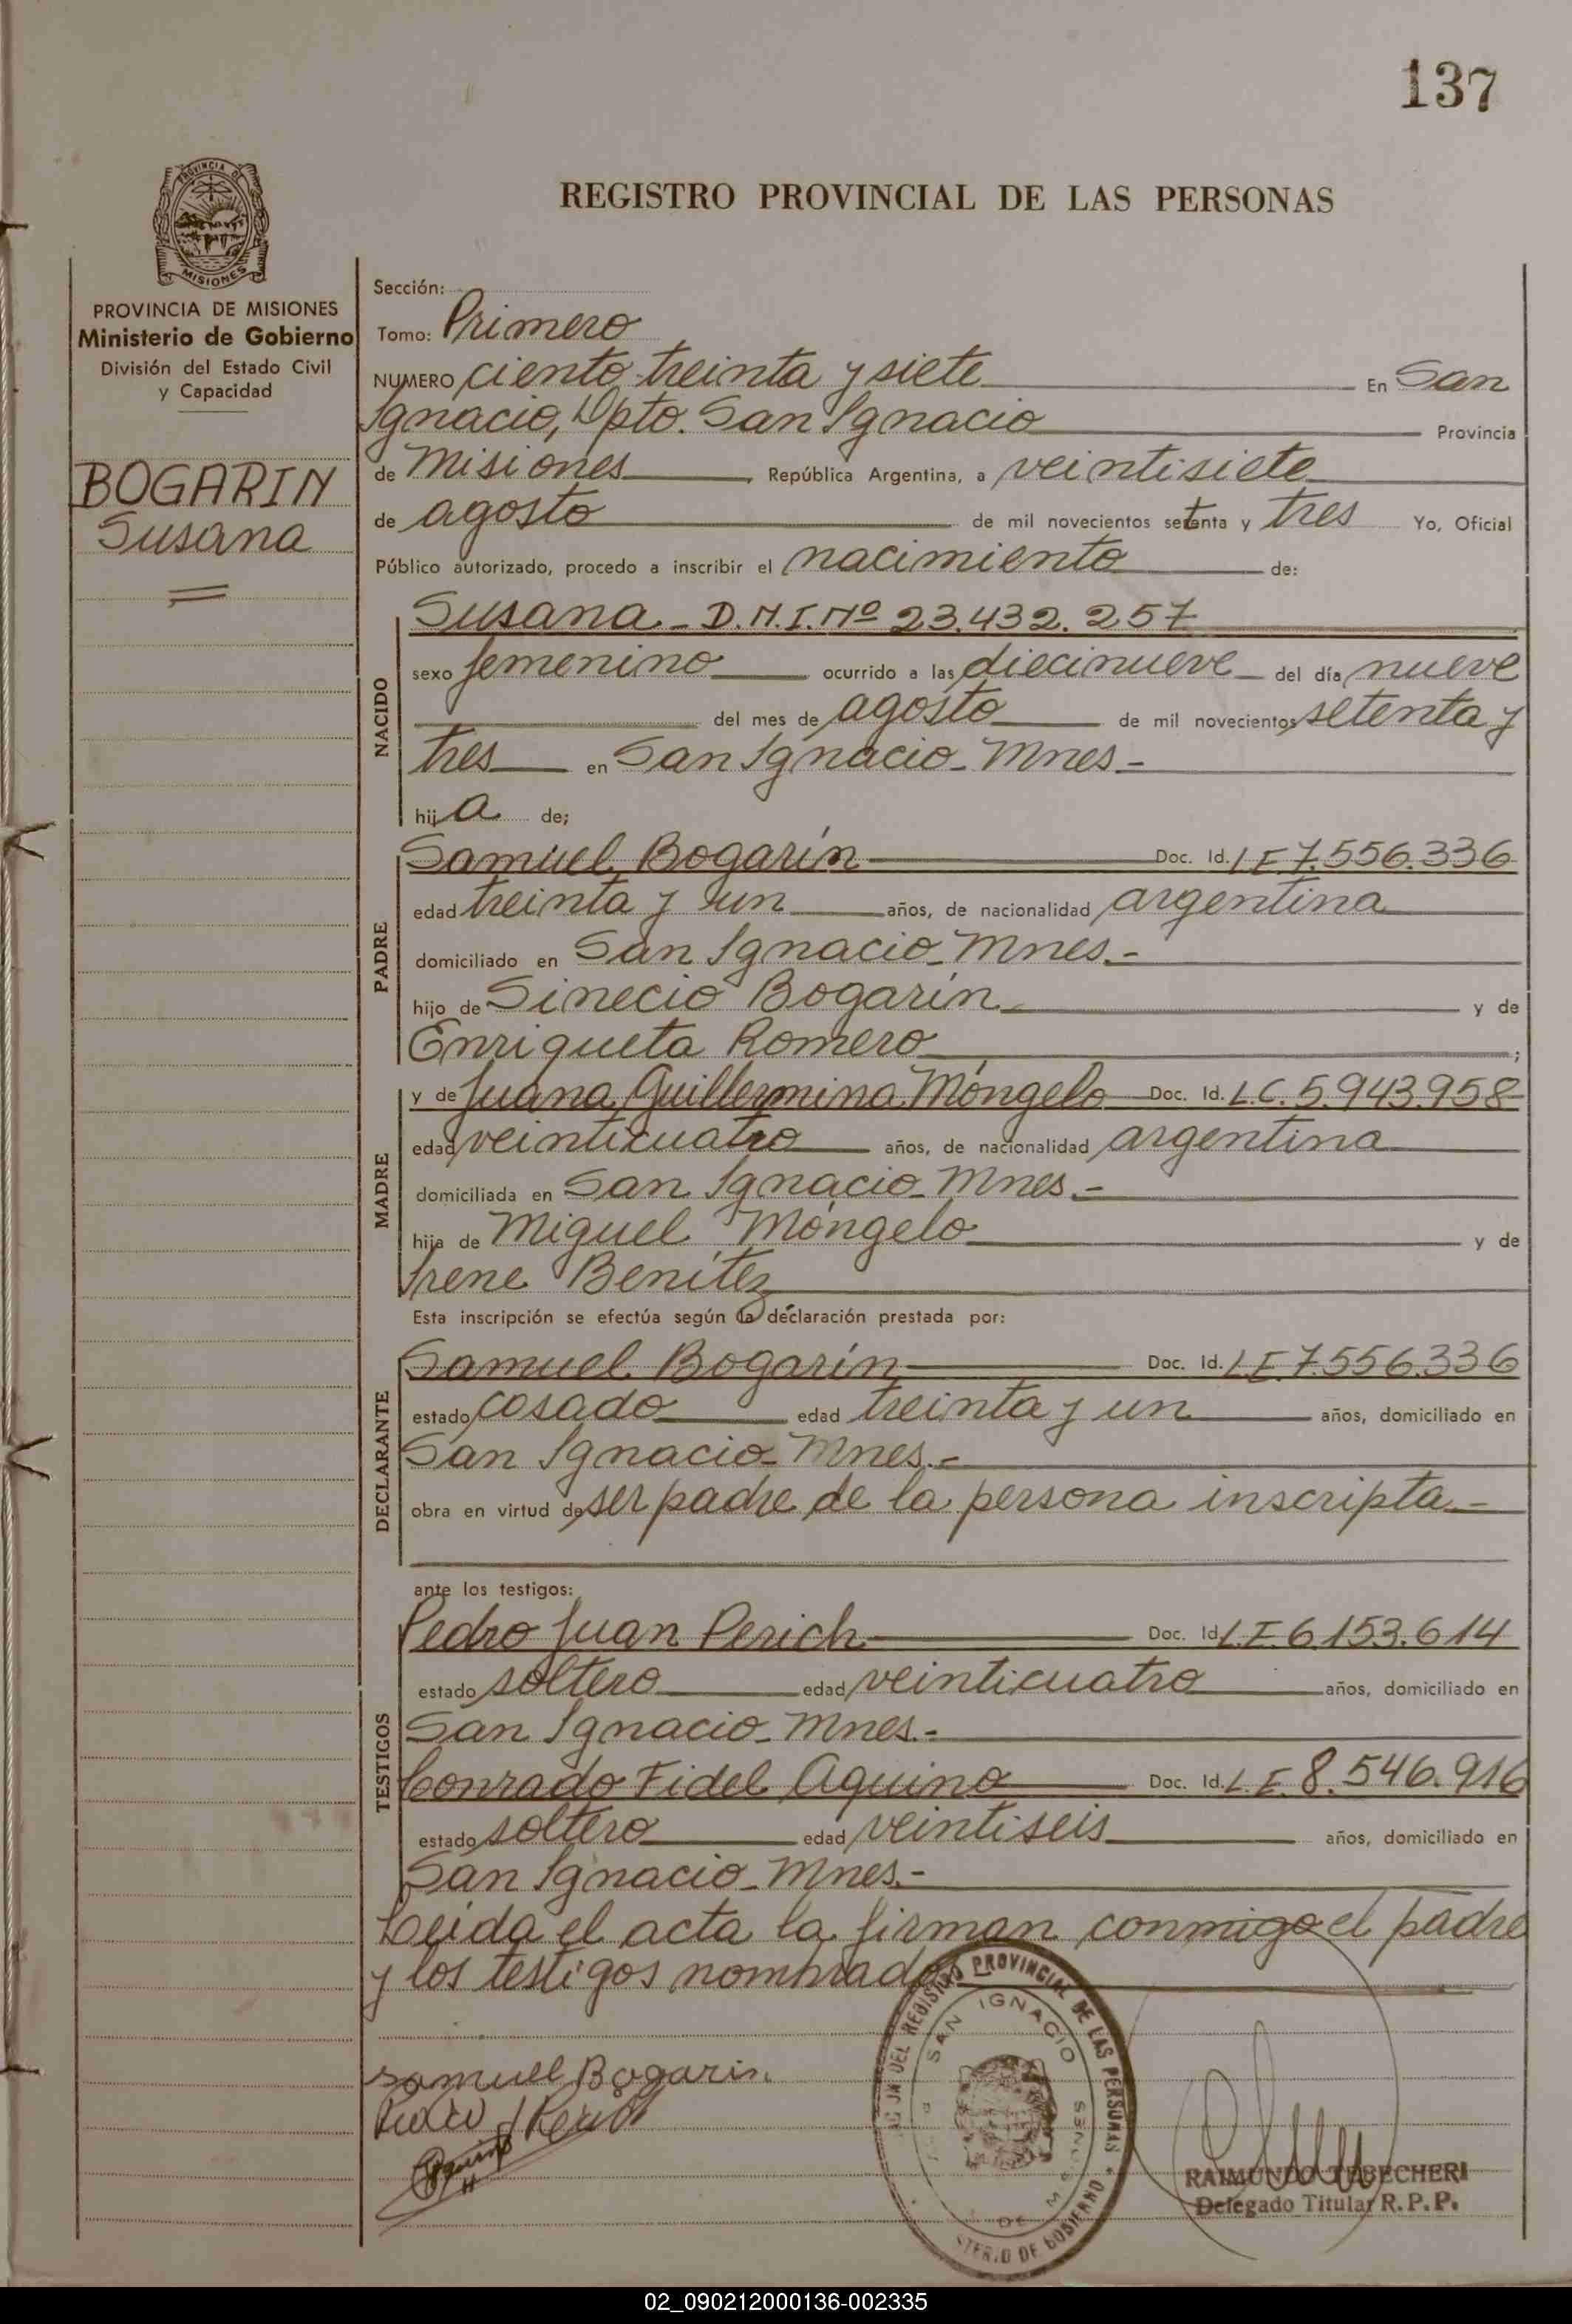 137
PROVINCIA DE
MISIONES
REGISTRO PROVINCIAL DE LAS PERSONAS
PROVINCIA DE MISIONES
Ministerio de Gobierno
División del Estado Civil
y Capacidad
BOGARIN
Susana
Sección:
Tomo: Primero
NUMERO ciento treinta y siete En San
Ignacio, Dpto. San Ignacio Provincia
de Misiones, República Argentina, a veintisiete
de agosto de mil novecientos setenta y tres Yo, Oficial
Público autorizado, procedo a inscribir el nacimiento de:
NACIDO
Susana - D.N.I. Nº 23.432.257
sexo femenino ocurrido a las diecinueve del día nueve
del mes de agosto de mil novecientos setenta y
tres en San Ignacio - Mnes -
hija de;
PADRE
Samuel Bogarín Doc. Id. L E 7.556.336
edad treinta y un años, de nacionalidad argentina
domiciliado en San Ignacio - Mnes. -
hijo de Sinecio Bogarín y de
Enriqueta Romero ;
MADRE
y de Juana Guillermina Móngelo Doc. Id. L.C. 5.943.958
edad veinticuatro años, de nacionalidad argentina
domiciliada en San Ignacio - Mnes. -
hija de Miguel Móngelo y de
Irene Benítez
Esta inscripción se efectúa según la declaración prestada por:
DECLARANTE
Samuel Bogarín Doc. Id. L.E. 7.556.336
estado casado edad treinta y un años, domiciliado en
San Ignacio - Mnes. -
obra en virtud de ser padre de la persona inscripta. -
ante los testigos:
TESTIGOS
Pedro Juan Perich Doc. Id. L.E. 6.153.614
estado soltero edad veinticuatro años, domiciliado en
San Ignacio - Mnes. -
Conrado Fidel Aquino Doc. Id. L.E. 8.546.916
estado soltero edad veintiseis años, domiciliado en
San Ignacio - Mnes. -
Leida el acta la firman conmigo el padre
y los testigos nombrados
DEL REGISTRO PROVINCIAL DE LAS PERSONAS
SAN IGNACIO
DE
DE GOBIERNO
Samuel Bogarin.
Aquino
RAIMUNDO TEBECHERI
Delegado Titular R. P. P.
02_090212000136-002335